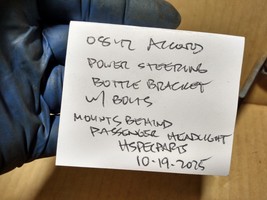 ACCORD
POWER STEERING
BOTTLE BRACKET
W/ BOLTS
MOUNTS BEHIND
PASSENGER HEADLIGHT
HSPECPARTS
10-19-2025